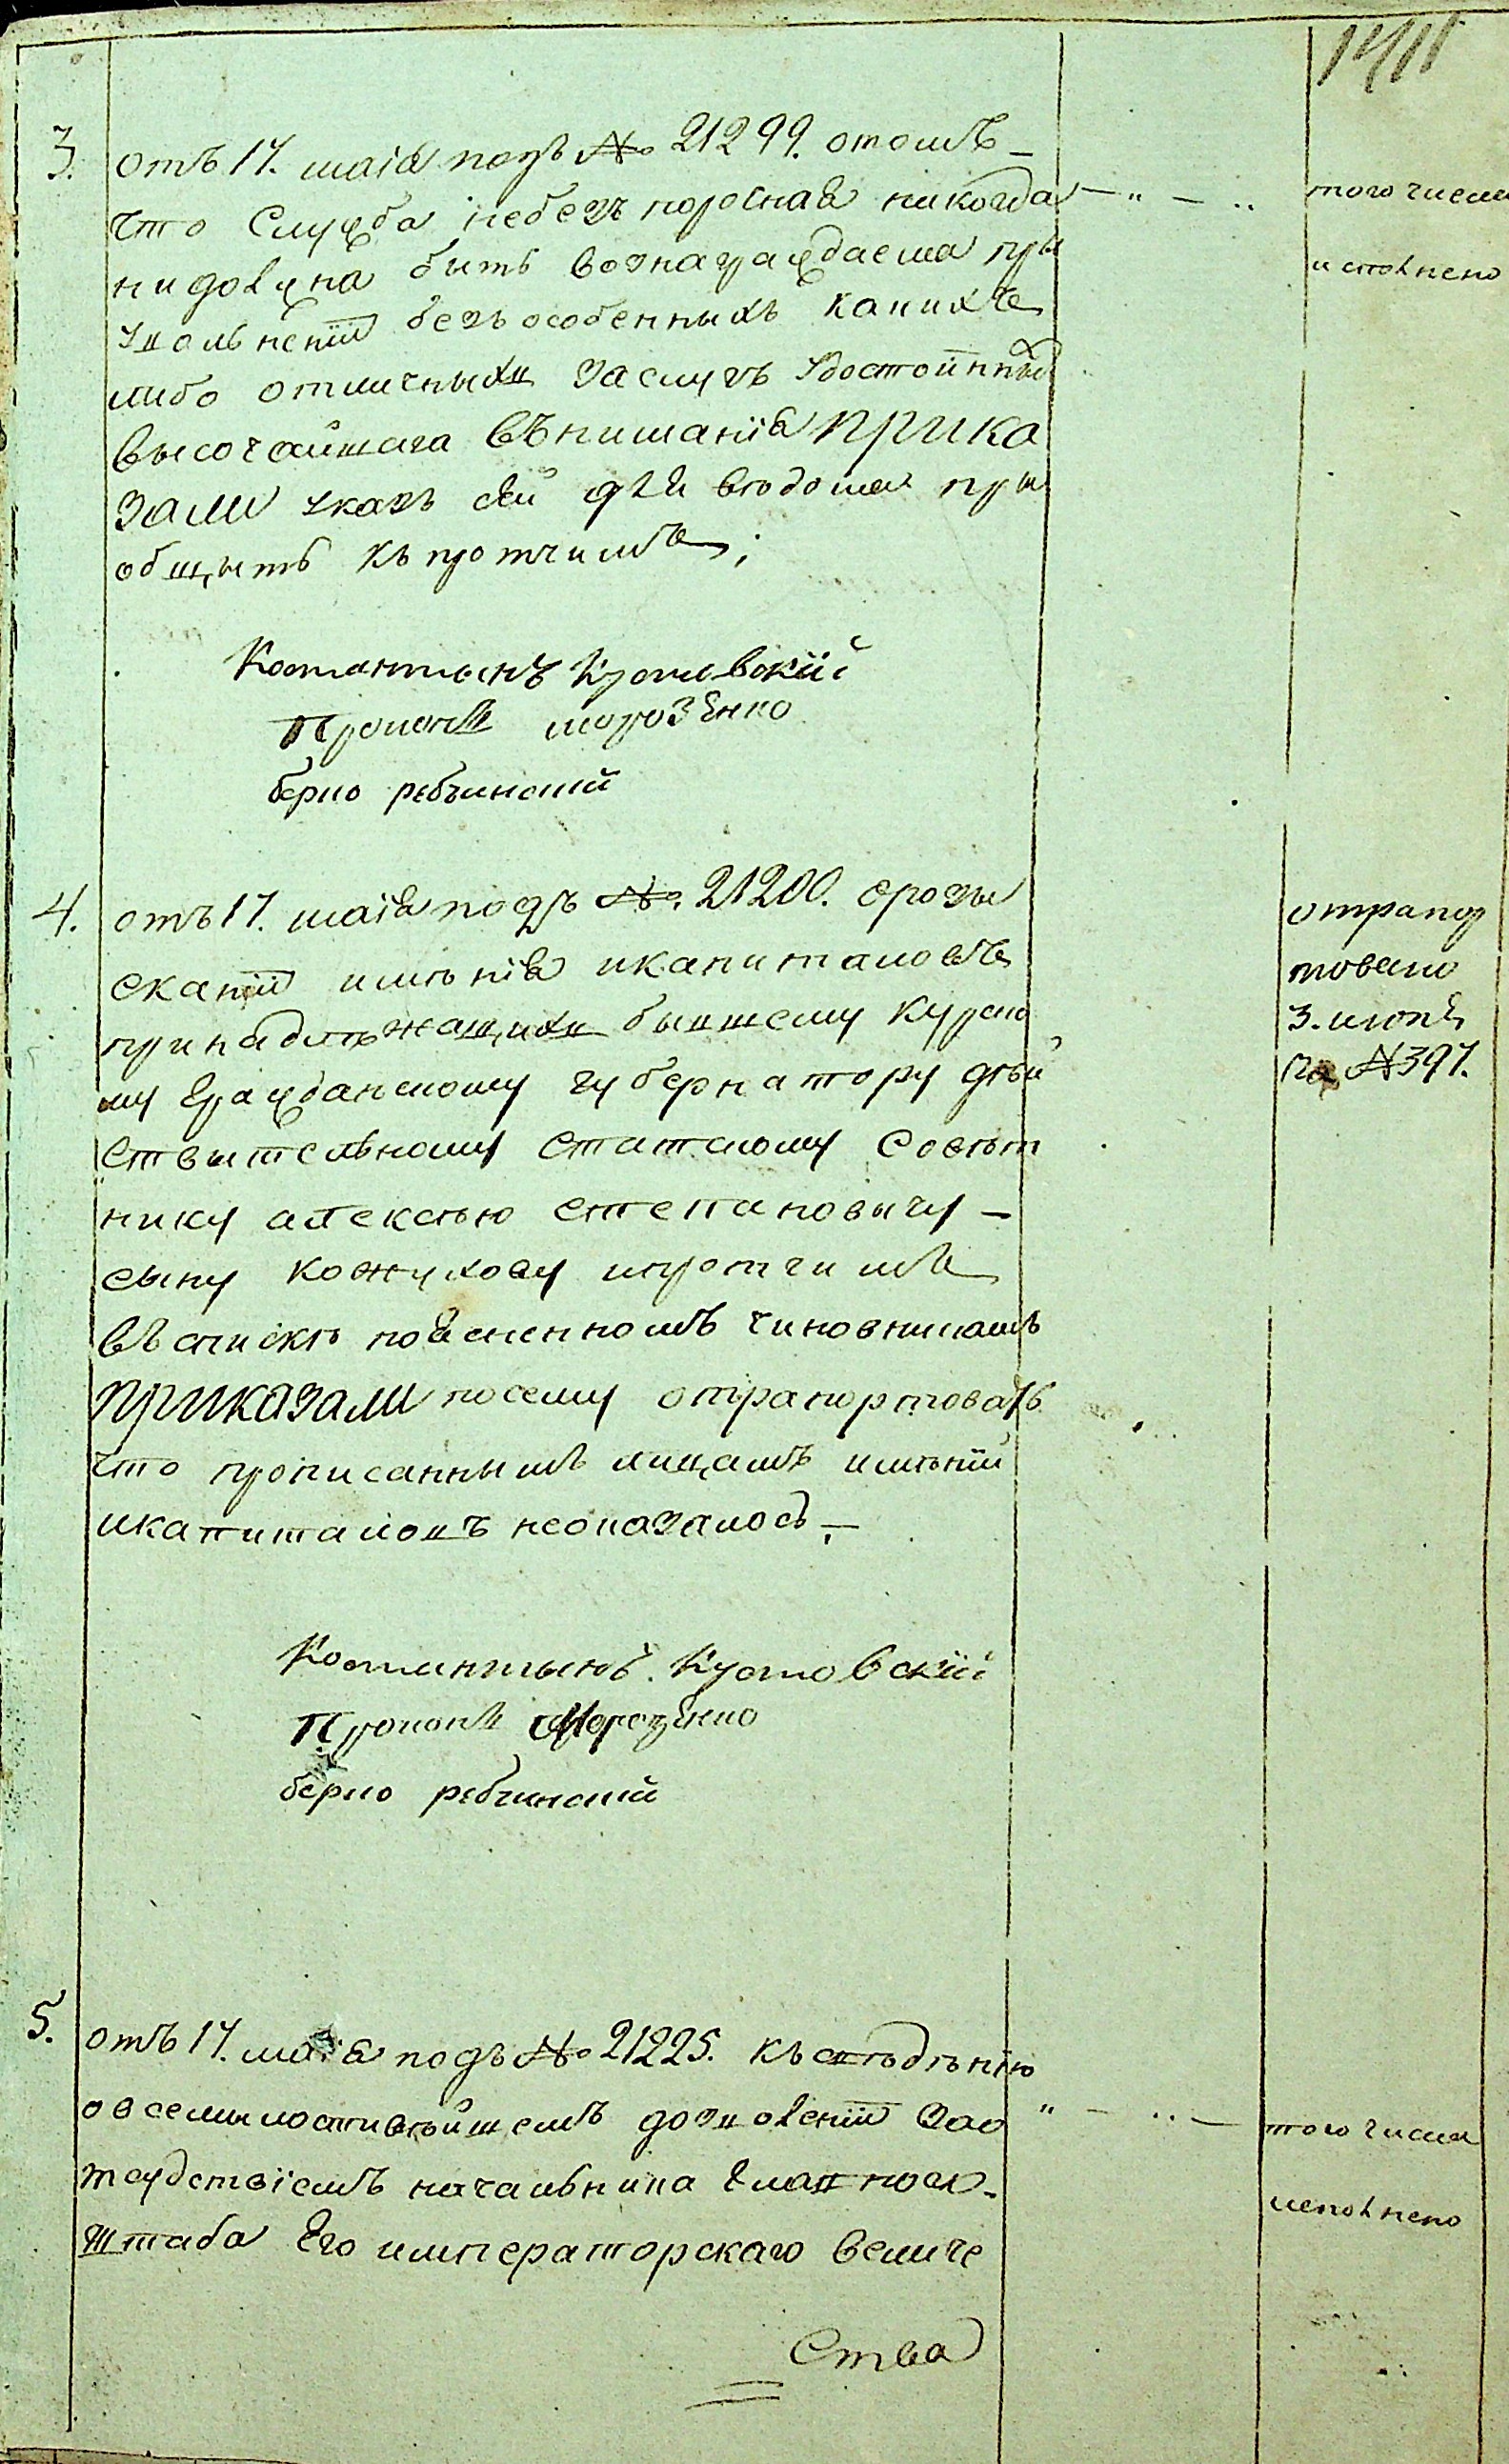 3. отъ 17. маія подъ № 21299. отомъ —
что Служба небезъ порочная никогда — " — "
недолжна быть вознаграждаема при
увольненіи безъ особенныхъ какихъ
либо отличныхъ заслугъ удостоинныхъ
высочайшага вниманія Прика
зали указъ сей для вѣдома прі
общыть къ протчимъ;
того числа
исполнено
Костантынъ
Прокопъ Морозенко
отъ 17. маія подъ № 21200. орозы
4.
сканіи имѣнія икапиталовъ
принадлѣжащихъ бывшему Курско
му Гражданскому губернатору дѣй
ствытельному статскому совѣт
нику алексѣю степановичу —
сыну кожухову ипротчимъ
въ спискѣ поясненномъ чиновникамъ
Приказали посему отрапортовать
что прописаннымъ лицамъ имѣній
икапиталовъ неоказалось —
отрапор
товано
3. июня
№ 397.
Костантынъ
Прокопъ Морозенко
5. отъ 17. маія подъ № 21225. къ свѣдѣнію
овсемилостивѣйшемъ дозволеніи Зао
тсудствіемъ начальника Главнаго
штаба Его императорскаго величе
ства
" — " — того числа
исполнено